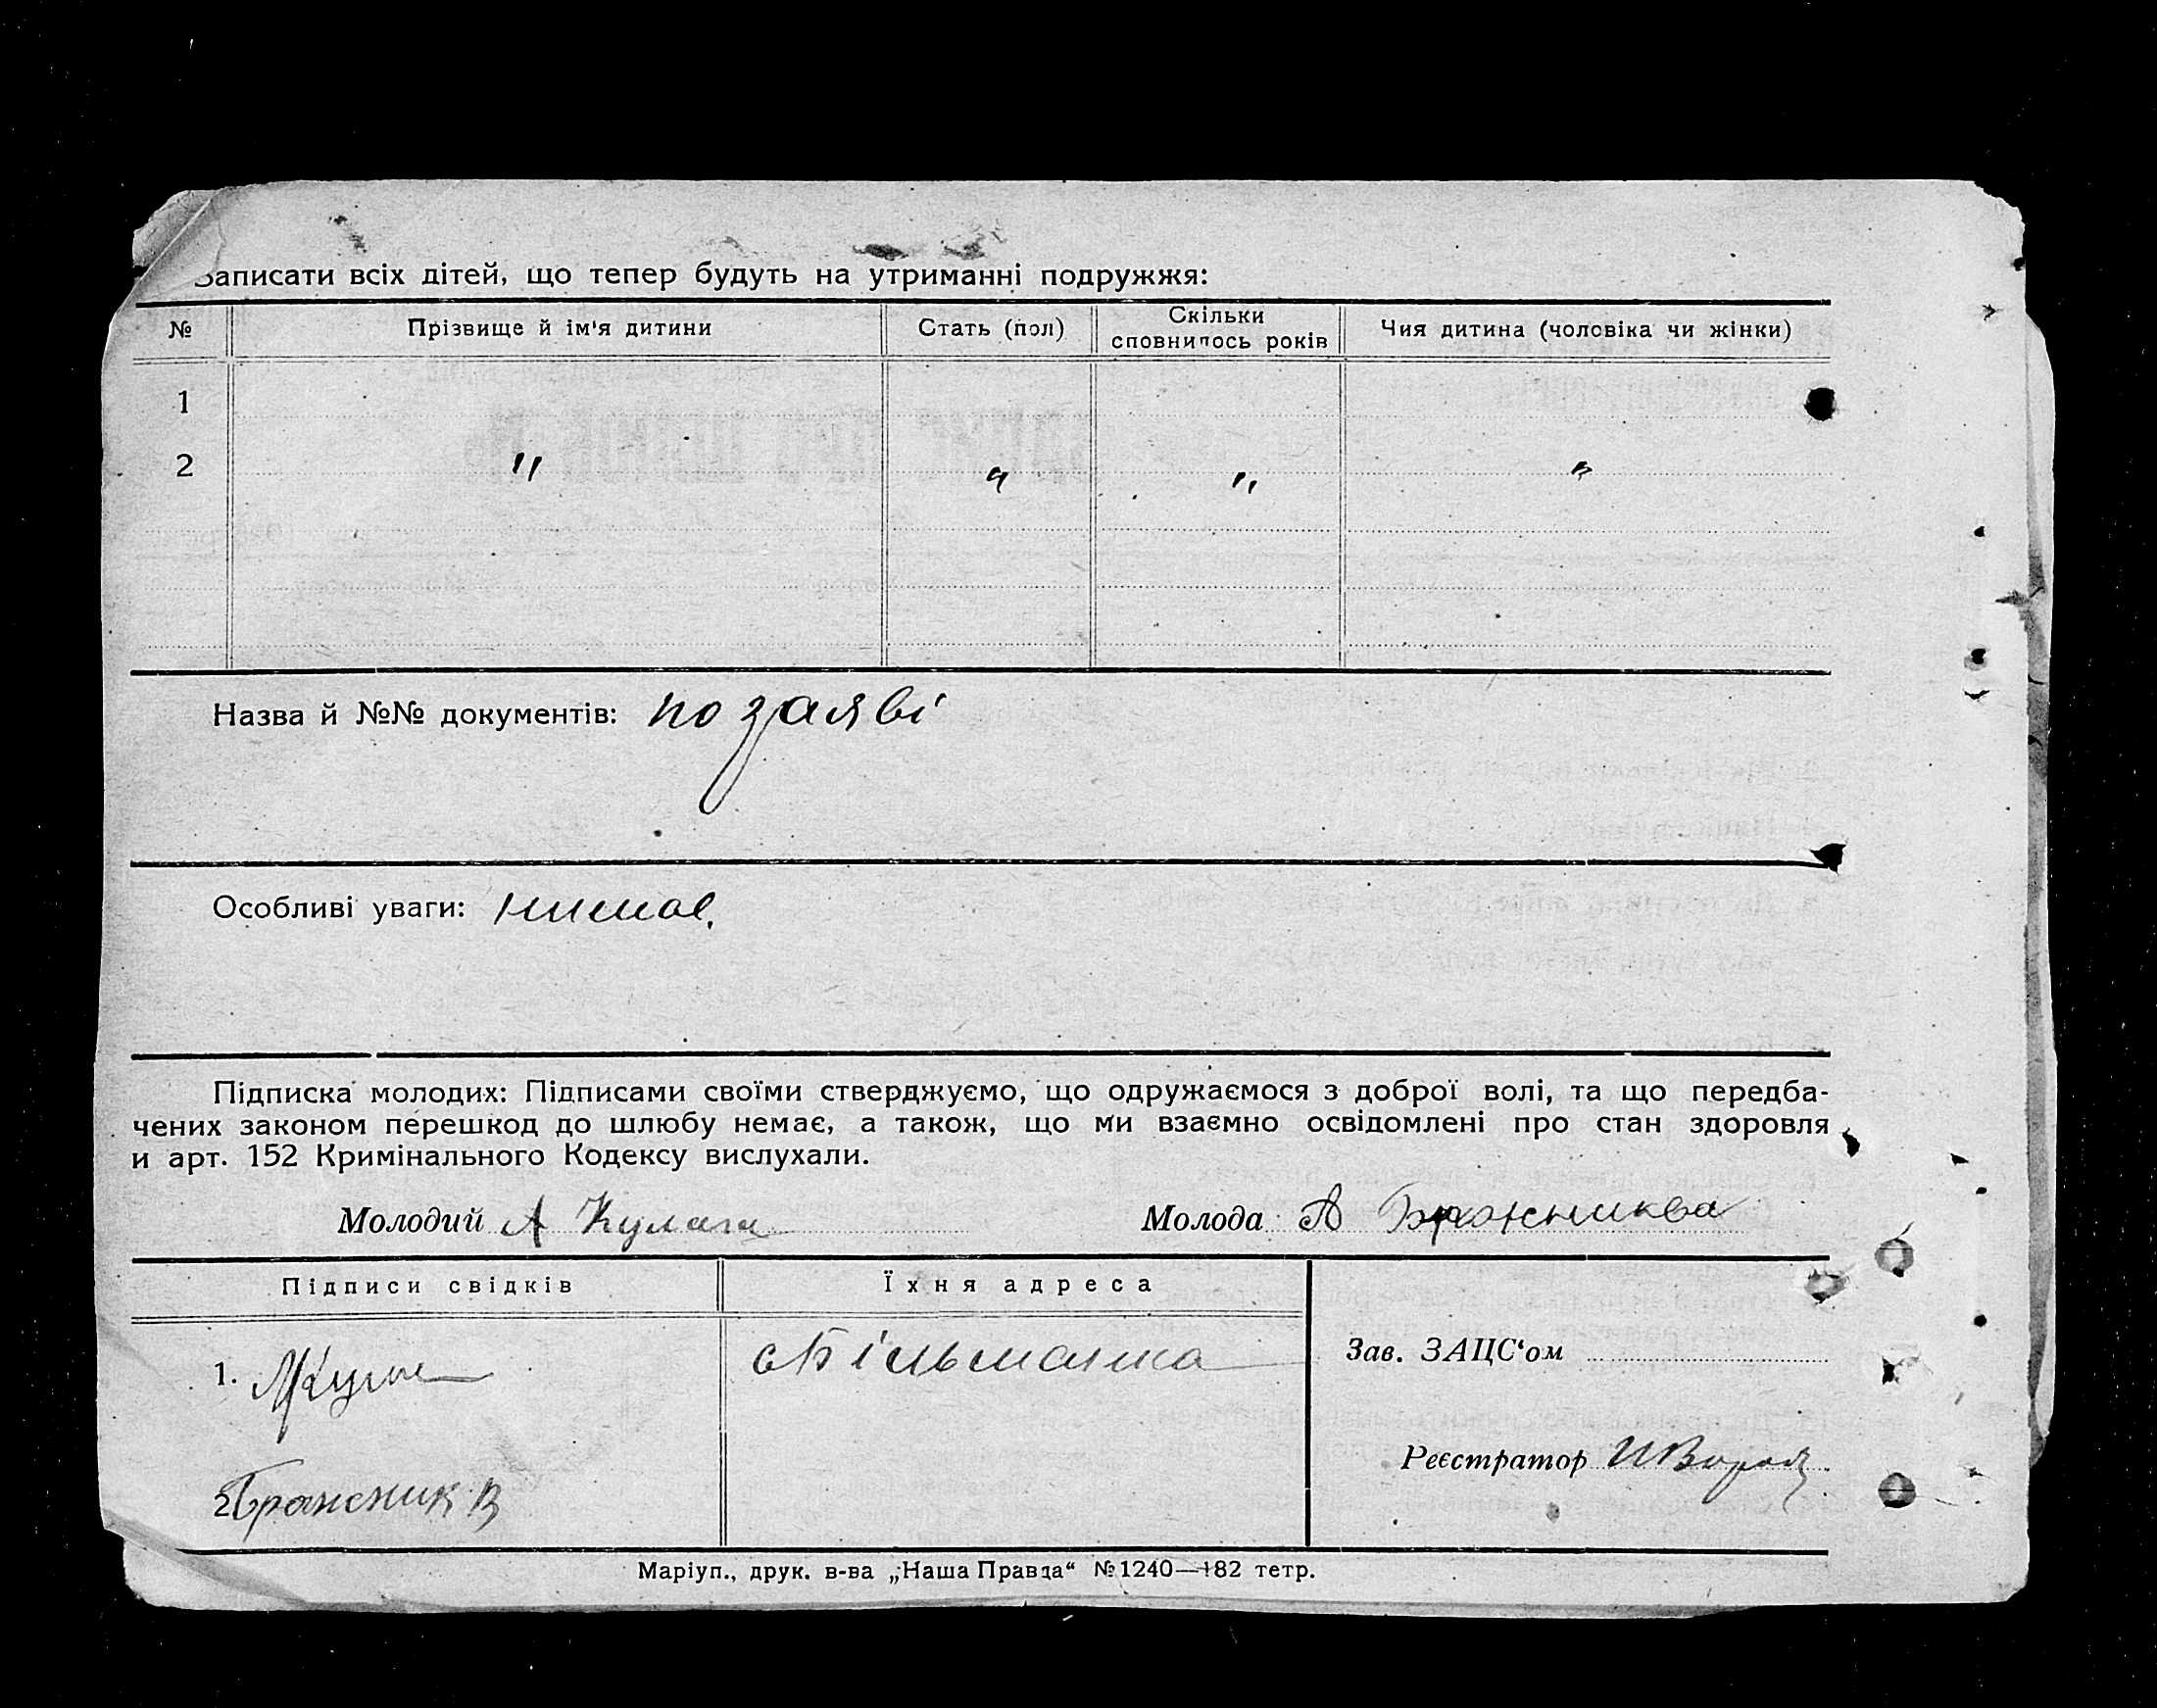 Записати всіх дітей, що тепер будуть на утриманні подружжя:
№ Прізвище й ім'я дитини Стать (пол) Скільки сповнилось років Чия дитина (чоловіка чи жінки)
1
2 " " " "
Назва й №№ документів: по заяві
Особливі уваги: нимає.
Підписка молодих: Підписами своїми стверджуємо, що одружаємося з доброї волі, та що передба-
чених законом перешкод до шлюбу немає, а також, що ми взаємно освідомлені про стан здоровля
и арт. 152 Кримінального Кодексу вислухали.
Молодий А Кулага Молода А Бражникова
Підписи свідків Їхня адреса
1. с Більманка Зав. ЗАЦС‘ом
Реєстратор
2 Бражник В
Маріуп., друк. в-ва „Наша Правда“ №1240—182 тетр.